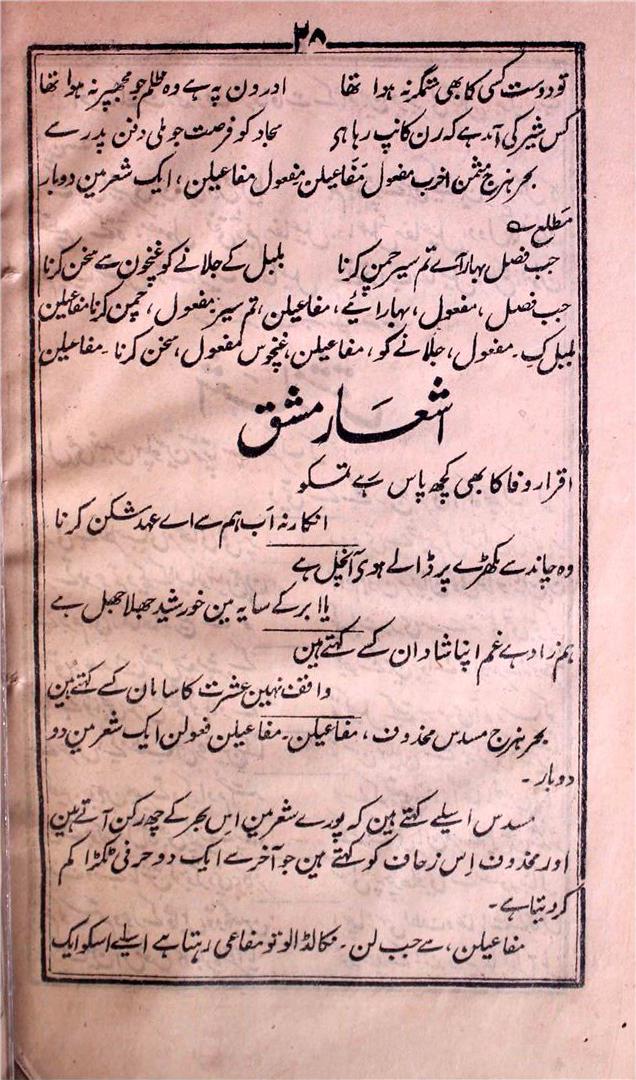 ۳۸
تو دوست کسی کا بھی ستمگر نہ ہوا تھا اورون پہ ہے وہ ظلم جو مجھپر نہ ہوا تھا
کس شیر کی آمد ہے کہ رن کانپ رہا ہی سجاد کو فرصت جو ملی دفن پدر سے
بحر ہزج مثمن اخرب مفعول مفاعیلن مفعول مفاعیلن، ایک شعر مین دوبار
مطلع ے
جب فصل بہار آے تم سیر چمن کرنا بلبل کے جلانے کو غنچون سے سخن کرنا
جب فصل، مفعول، بہار ائے، مفاعیلن، تم سیر مفعول، چمن کرنا مفاعیلن
بلبل کِ۔ مفعول، جلانے کو، مفاعیلن، غنچوں س مفعول، سخن کرنا۔ مفاعیلن
اشعار مشق
اقرار وفا کا بھی کچھ پاس ہے تمکو
انکار نہ اب ہم سے اے عہد شکن کرنا
وہ چاند سے مکھڑے پر ڈالے ہوی آنچل ہے
یا ابر کے سایہ مین خورشید جھلا جھل ہے
ہمزاد ہے غم اپنا شادان کسے کہتے ہین
واقف نہین عشرت کا سامان کسے کہتے ہین
بحر ہزج مسدس محذوف، مفاعیلن۔ مفاعیلن فعولن ایک شعر مین دو
دوبار۔
مسدس اسلیے کہتے ہین کہ پورے شعر مین اس بحر کے چھ رکن آتے ہین
اور محذوف اِس زحاف کو کہتے ہین جو آخر سے ایک دو حرفی ٹکڑا کم
کر دیتا ہے۔
مفاعیلن، سے جب لن۔ نکالڈالو تو مفاعی رہتا ہے اسلیے اسکو ایک